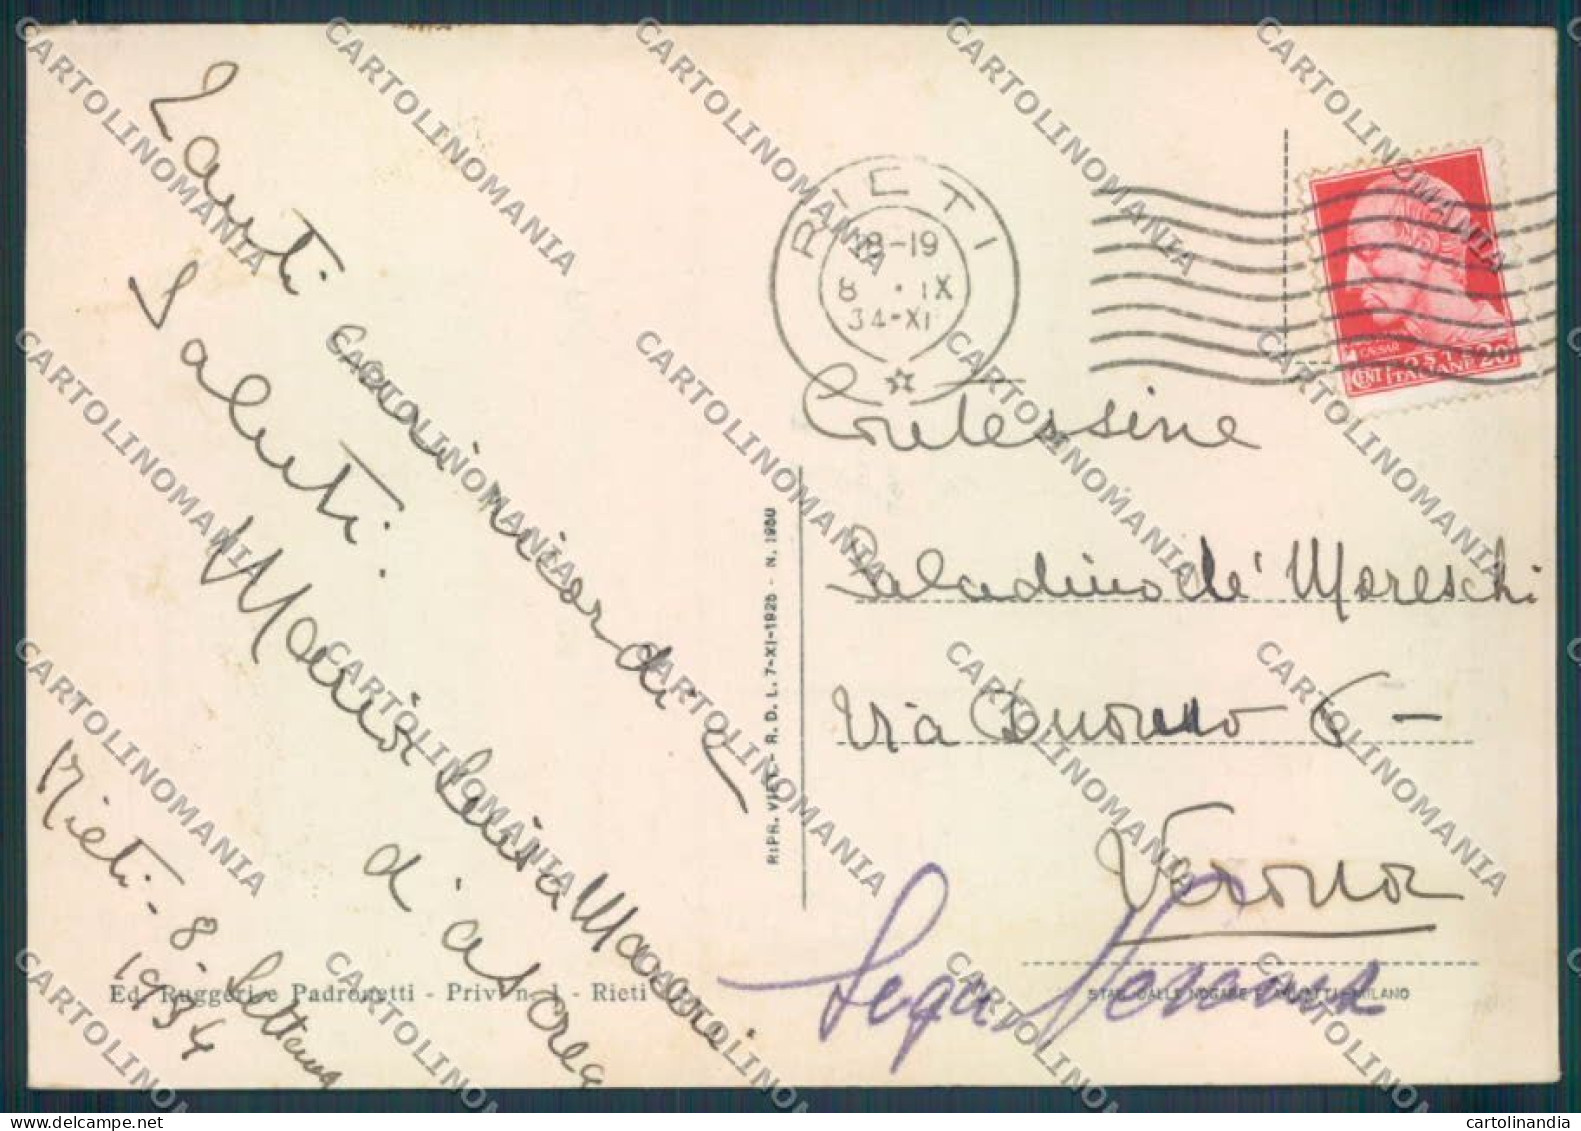 Tanti cari ricordi e
Saluti.
Maria Luisa
d'
Rieti - 8 - Settembre
1934
Ed. Ruggeri e Padronetti - Priv. n. 1 - Rieti
RIPR. VIET. - R. D. L. 7-XI-1925 - N. 1950
RIETI
18-19
8 · IX
34-XI
CAESAR
CENT. POST. 20
ITALIANE
Contessine
Paladino de' Moreschi
Via 6 -
Verona
STAB. DALLE NOGARE E ARMETTI - MILANO
CARTOLINOMANIA
cartolinandia